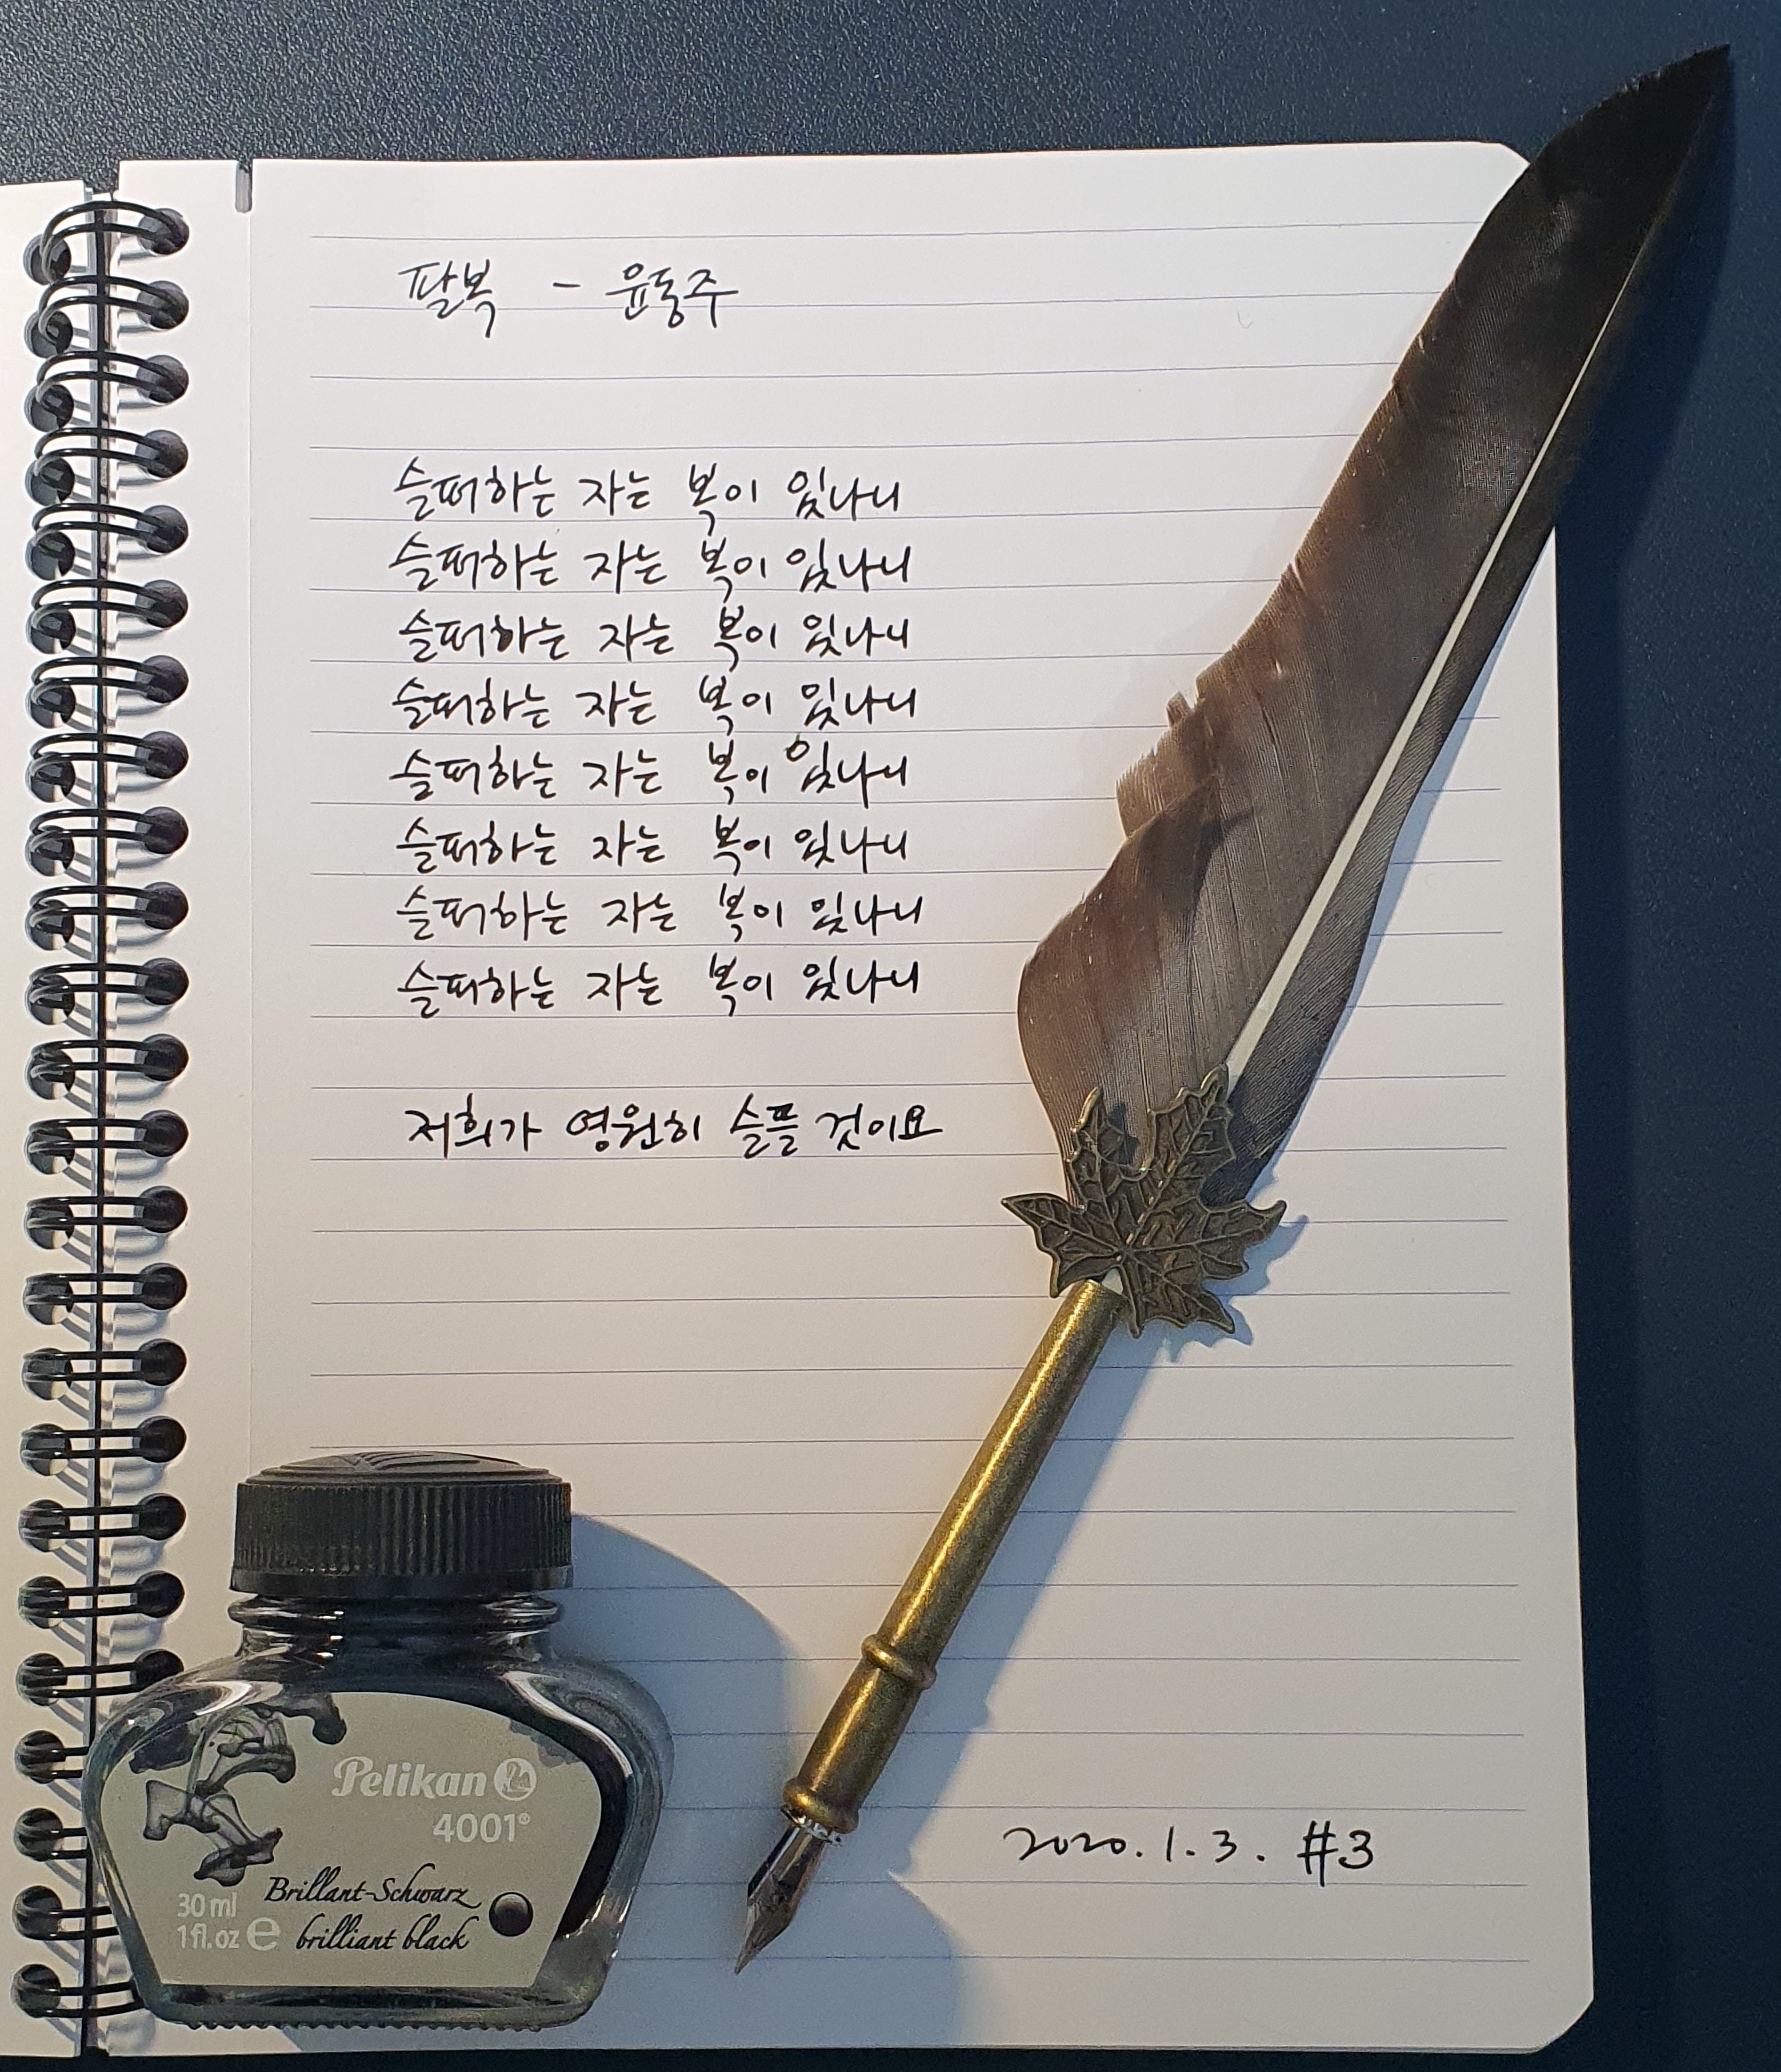 팔복 - 윤동주
슬퍼하는 자는 복이 있나니
슬퍼하는 자는 복이 있나니
슬퍼하는 자는 복이 있나니
슬퍼하는 자는 복이 있나니
슬퍼하는 자는 복이 있나니
슬퍼하는 자는 복이 있나니
슬퍼하는 자는 복이 있나니
슬퍼하는 자는 복이 있나니
저희가 영원히 슬플 것이요
2020.1.3. #3
Pelikan
4001®
Brillant-Schwarz
brilliant black
30 ml
1 fl.oz e